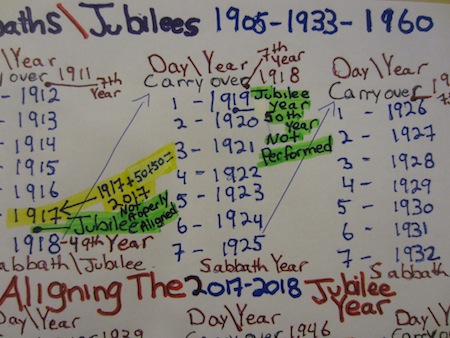 baths\Jubilees 1905-1933-1960
\Year
y over 1911
7th Year
- 1912
- 1913
- 1914
- 1915
- 1916
1917 ← 1917+50+50=
2017
Not Properly Aligned
Jubilee
1918 - 49th Year
abbath\Jubilee
Day\Year
Carry over
7th Year
1918
1 - 1919
2 - 1920
3 - 1921
4 - 1922
5 - 1923
6 - 1924
7 - 1925
Sabbath Year
Jubilee
year
50th
year
Not
Performed
Day\Year
Carry over
1 - 1926
2 - 1927
3 - 1928
4 - 1929
5 - 1930
6 - 1931
7 - 1932
Sabbath
Aligning The 2017-2018 Jubilee
Year
Day\Year
1939
Day\Year
1946
Day\Year